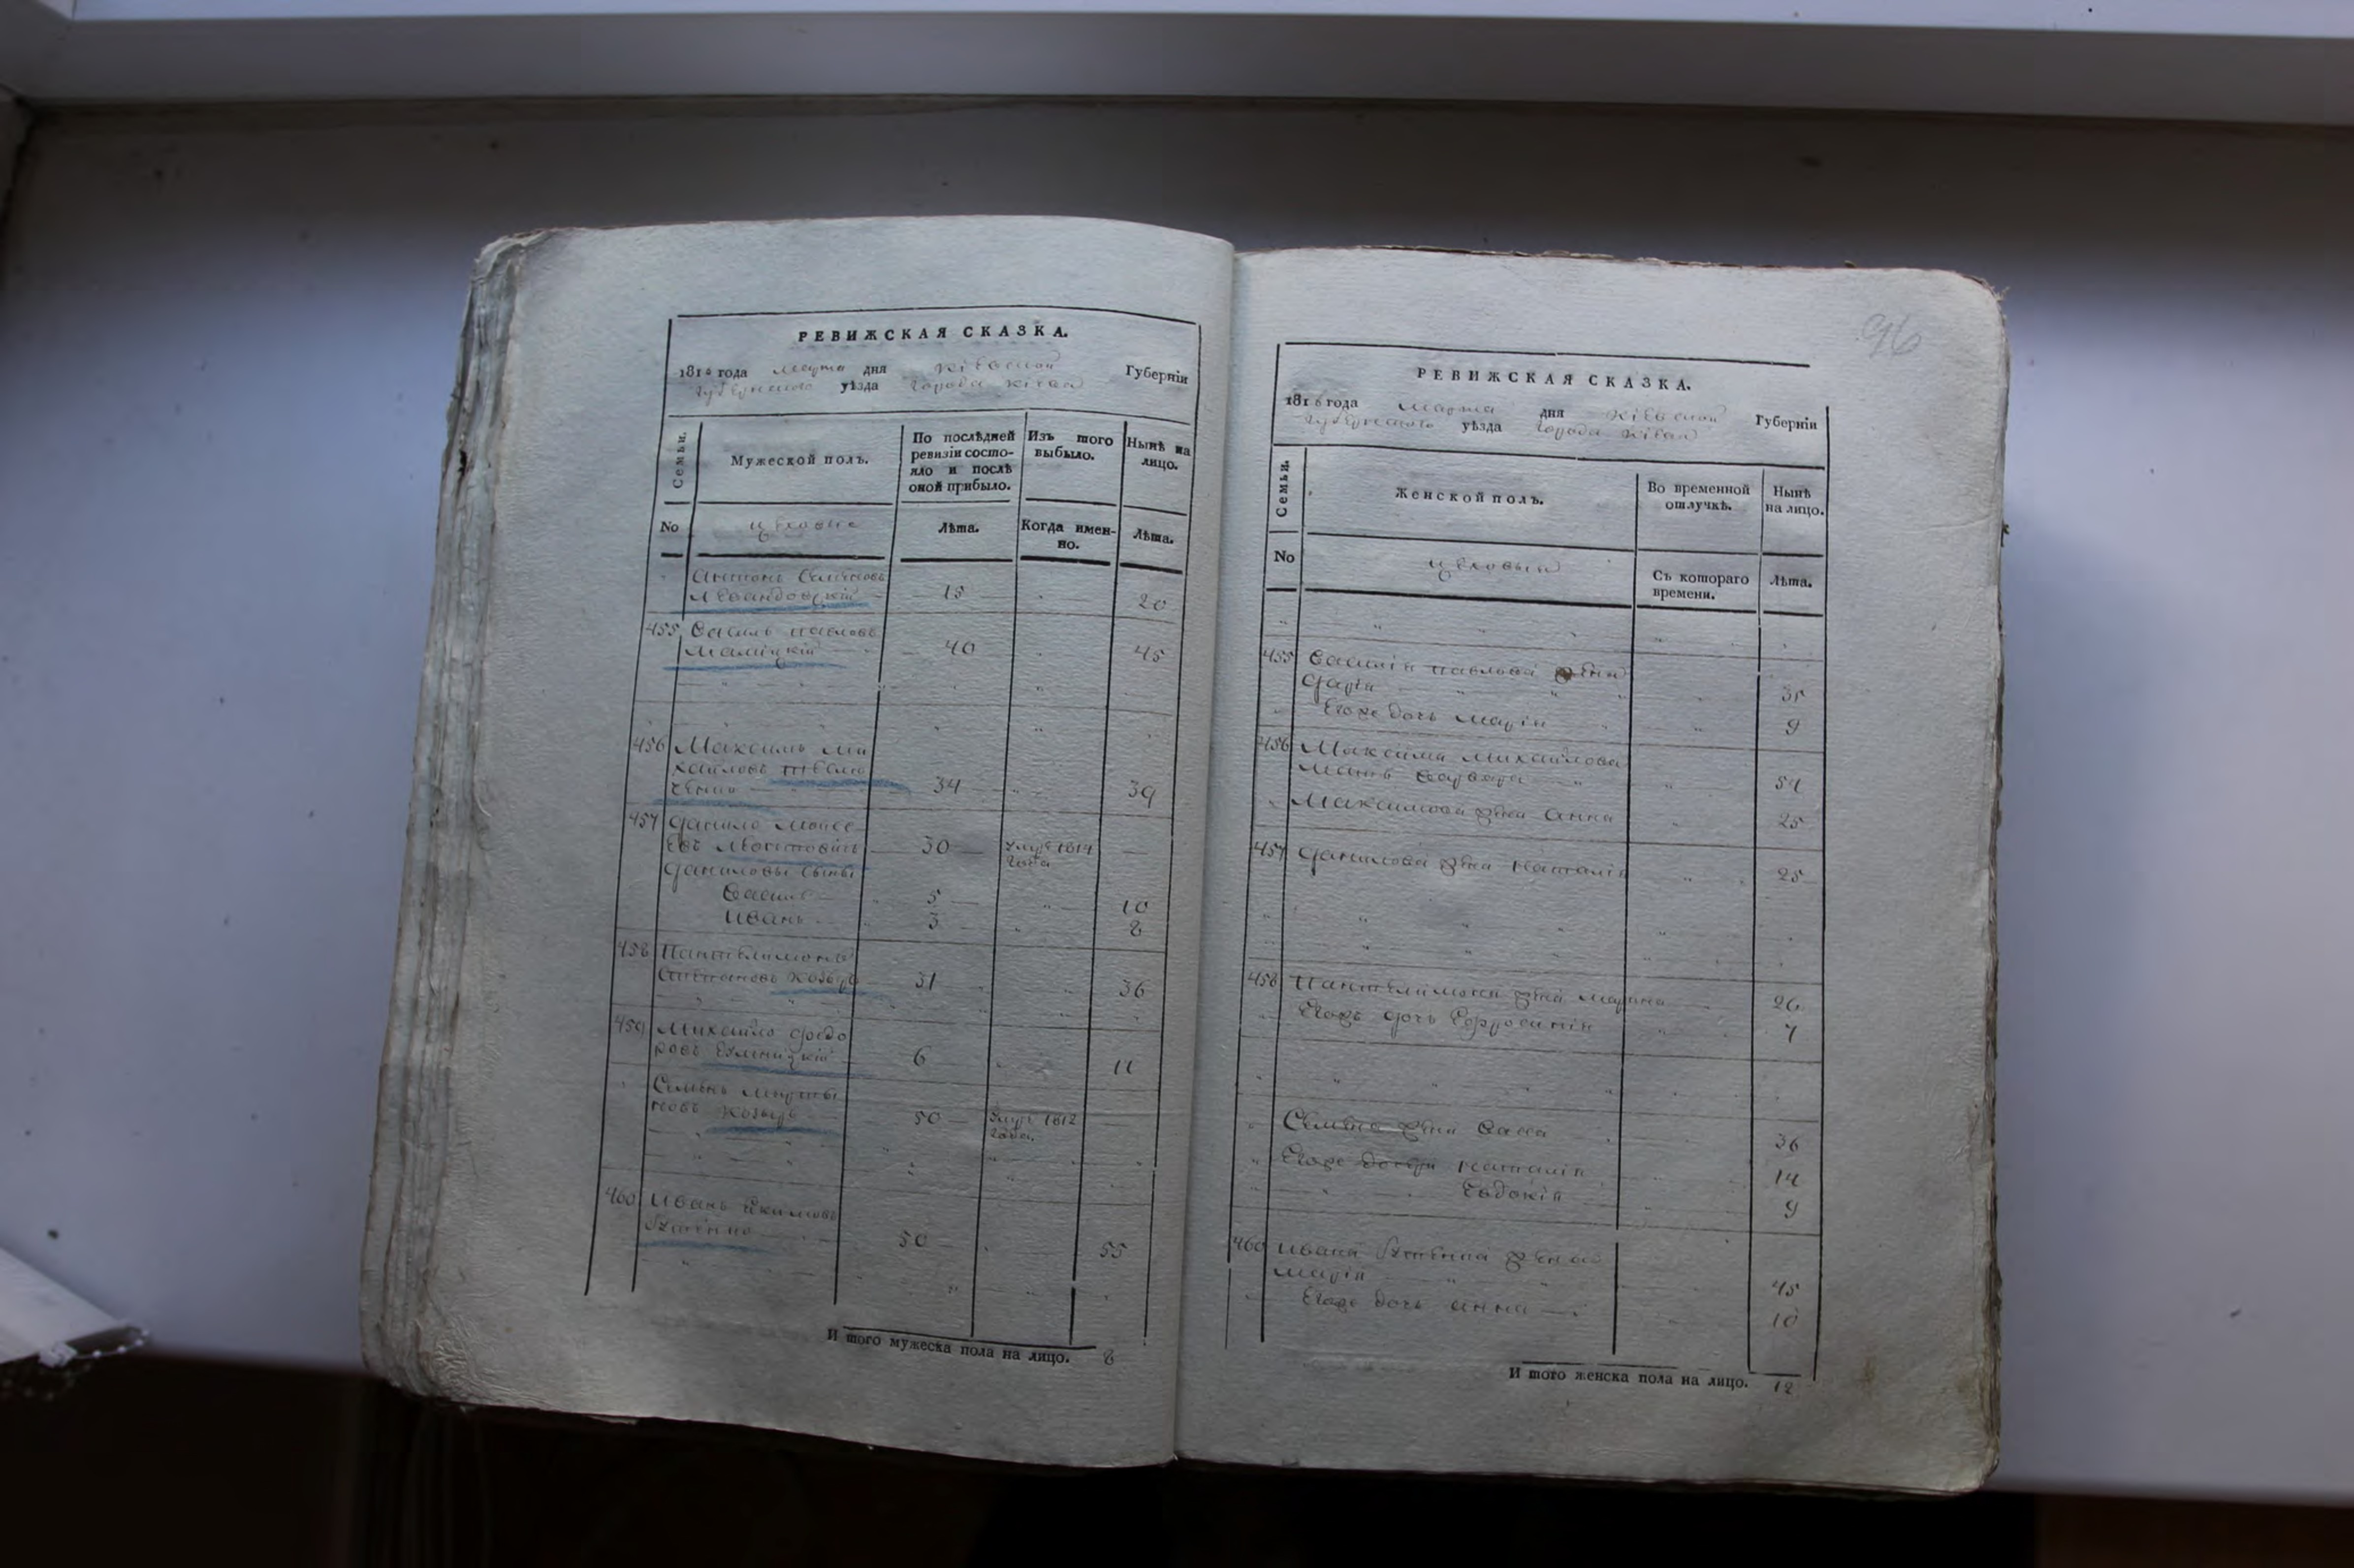 РЕВИЖСКАЯ СКАЗКА.
1816 года марта дня Кіевской Губерніи
Губернского уѣзда города Кіева
Семьи.
Мужеской полъ.
По послѣдней ревизіи состояло и послѣ оной прибыло.
Изъ того выбыло.
Нынѣ на лицо.
No
цеховые
Лѣта.
Когда именно.
Лѣта.
Антонъ Семіоновъ
Левандовскій 15 20
455 Василь Павловъ
40 45
456 Максимъ Ми
хайловъ
34 39
457 Данило Моисе
евъ 30 умре 1814 года
Даниловы сыны
Василь 5 10
Иванъ 3 8
458 Пантелимонъ
Степановъ Козырь 31 36
459 Михайло Федо
ровъ 6 11
Семенъ Марты
новъ Козырь 50 умре 1812 года
460 Иванъ Якимовъ
50 55
И того мужеска пола на лицо. 8
96
РЕВИЖСКАЯ СКАЗКА.
1816 года марта дня Кіевской Губерніи
Губернского уѣзда города Кіева
Семьи.
Женской полъ.
Во временной отлучкѣ.
Нынѣ на лицо.
No
цеховыя
Съ котораго времени.
Лѣта.
455 Василія Павлова жена
Дарія 35
Егоже дочь Марія 9
456 Максима Михайлова
мать Варвара 54
Максимова жена Анна 25
457 Данилова жена Наталія 25
458 Пантелимона жена Марина 26
Егожъ дочь Ефросинія 7
Семена жена Васса 36
Егоже дочери Наталія 14
Евдокія 9
460 Ивана жена
Марія 45
Егоже дочь Анна 10
И того женска пола на лицо. 12